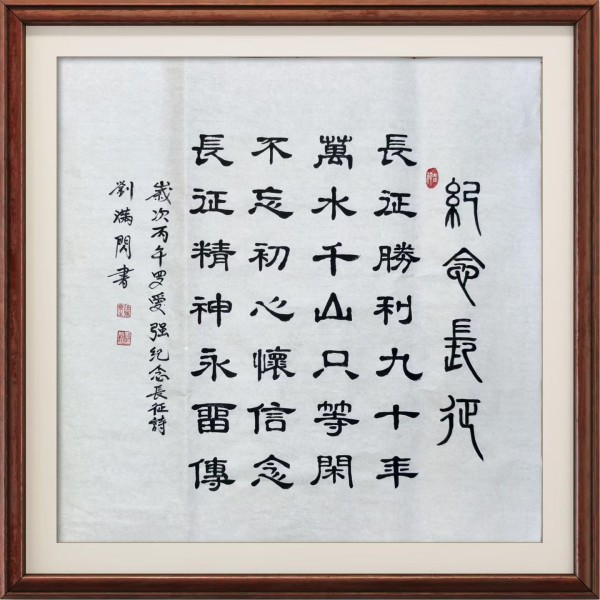 紀念長征
長征勝利九十年
萬水千山只等閑
不忘初心懷信念
長征精神永畱傳
歲次丙午罗愛强紀念長征詩
劉滿閃書